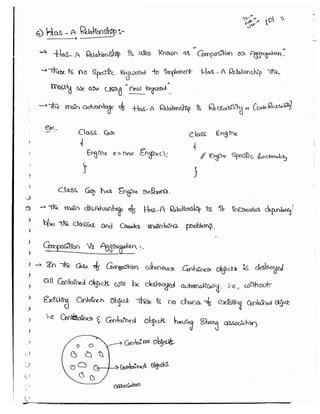 6) Has-A Relationship:-
→ Has-A Relationship is also known as "Composition or Aggregation."
→ There is no specific keyword to implement Has-A Relationship the
mostly we are using "new keyword".
→ The main advantage of Has-A Relationship is Reusability or (Code Reusability)
ex:-
class Car class Engine
{ {
Engine e = new Engine(); // Engine specific functionality
} }
class Car has Engine reference.
→ The main disadvantage of Has-A Relationship is it increases dependency
b/w the classes and creates maintaince problems.
Composition Vs Aggregation:-
→ In the case of Composition whenever Container object is destroyed
all Contained objects will be destroyed automatically. i.e, without
Existing Container object there is no chance of existing Contained object
i.e Container & Contained objects having strong association.
→ Container object
→ Contained objects
association